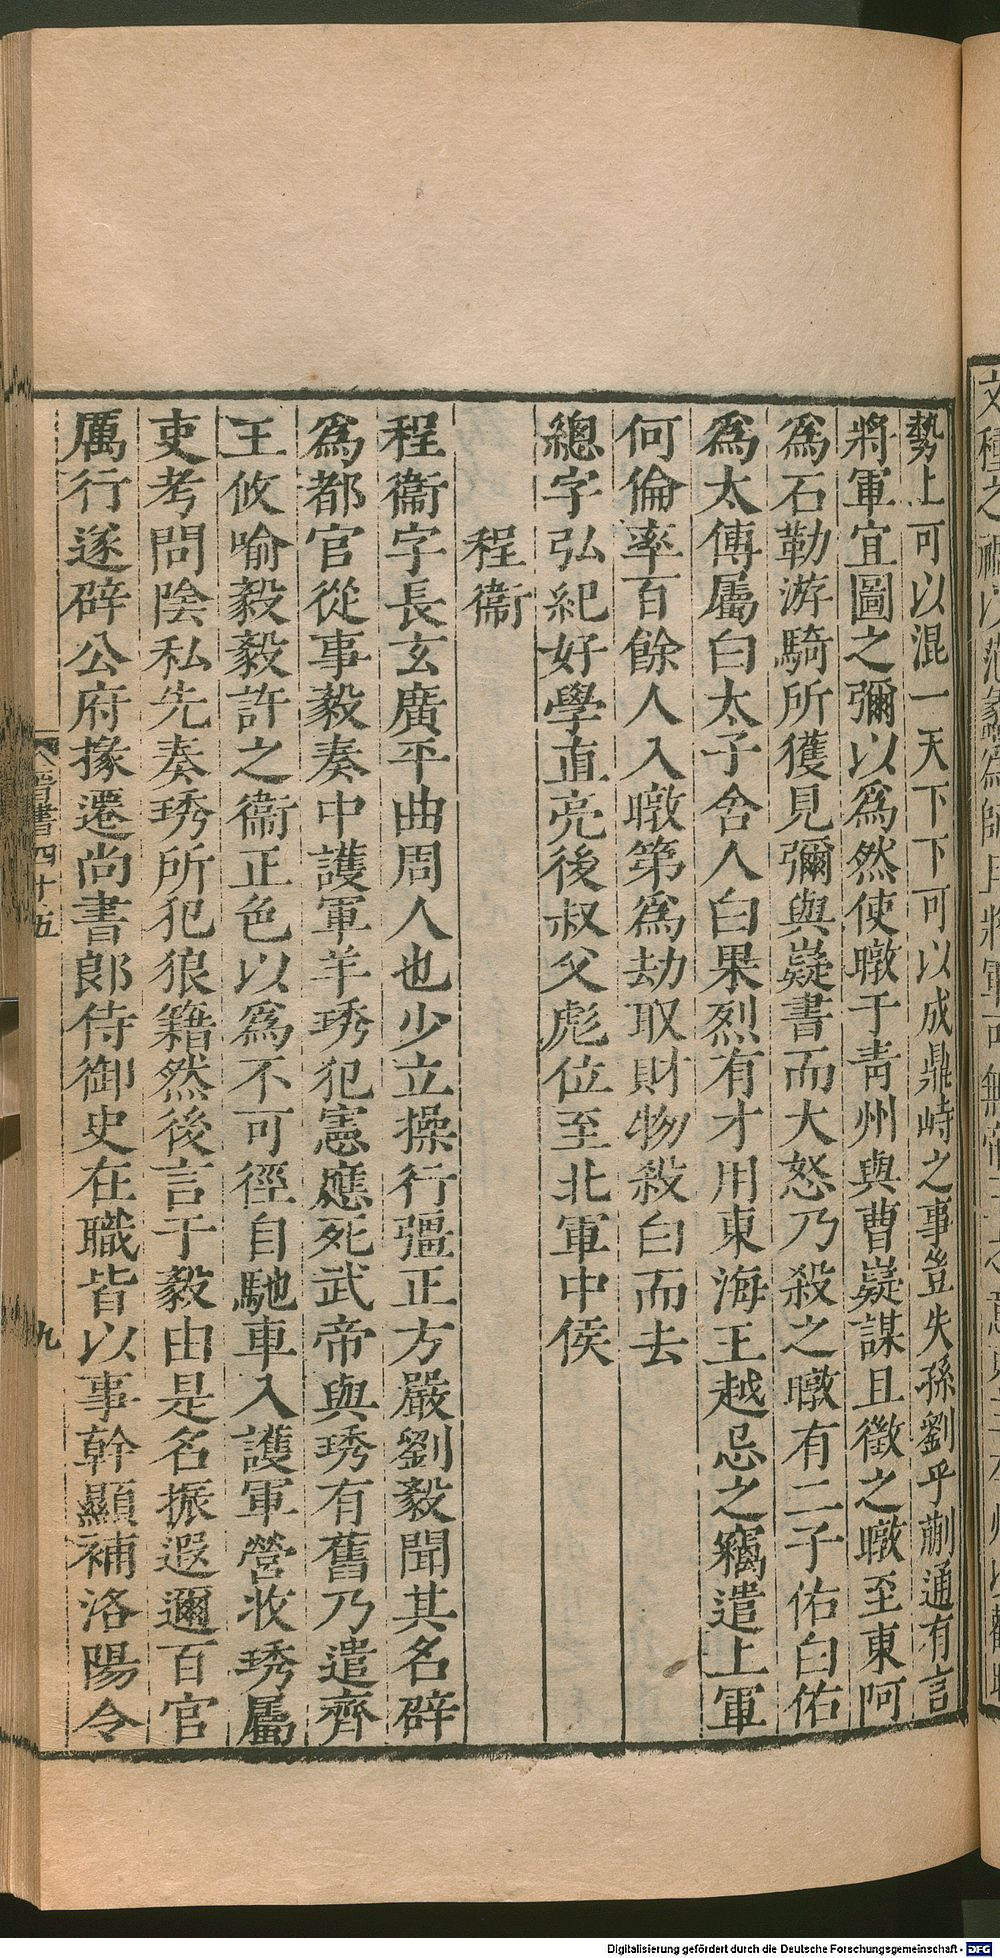 勢上可以混一天下下可以成鼎峙之事豈失孫劉乎蒯通有言
將軍宜圖之彌以爲然使暾于青州與曹嶷謀且徵之暾至東阿
爲石勒游騎所獲見彌與嶷書而大怒乃殺之暾有二子佑白佑
爲太傅屬白太子舍人白果烈有才用東海王越忌之竊遣上軍
何倫率百餘人入暾第爲劫取財物殺白而去
總字弘紀好學直亮後叔父彪位至北軍中侯
程衞
程衞字長玄廣平曲周人也少立操行彊正方嚴劉毅聞其名辟
爲都官從事毅奏中護軍羊琇犯憲應死武帝與琇有舊乃遣齊
王攸喻毅毅許之衞正色以爲不可徑自馳車入護軍營收琇屬
吏考問陰私先奏琇所犯狼籍然後言于毅由是名振遐邇百官
厲行遂辟公府掾遷尚書郎侍御史在職皆以事幹顯補洛陽令
晉書四十五
九
Digitalisierung gefördert durch die Deutsche Forschungsgemeinschaft - DFG